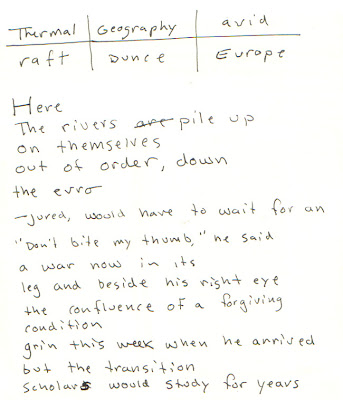 Thermal Geography avid
raft Dunce Europe
Here
The rivers are pile up
on themselves
out of order, down
the euro
-jured, would have to wait for an
"Don't bite my thumb," he said
a war now in its
leg and beside his right eye
the confluence of a forgiving
condition
grin this week when he arrived
but the transition
scholars would study for years